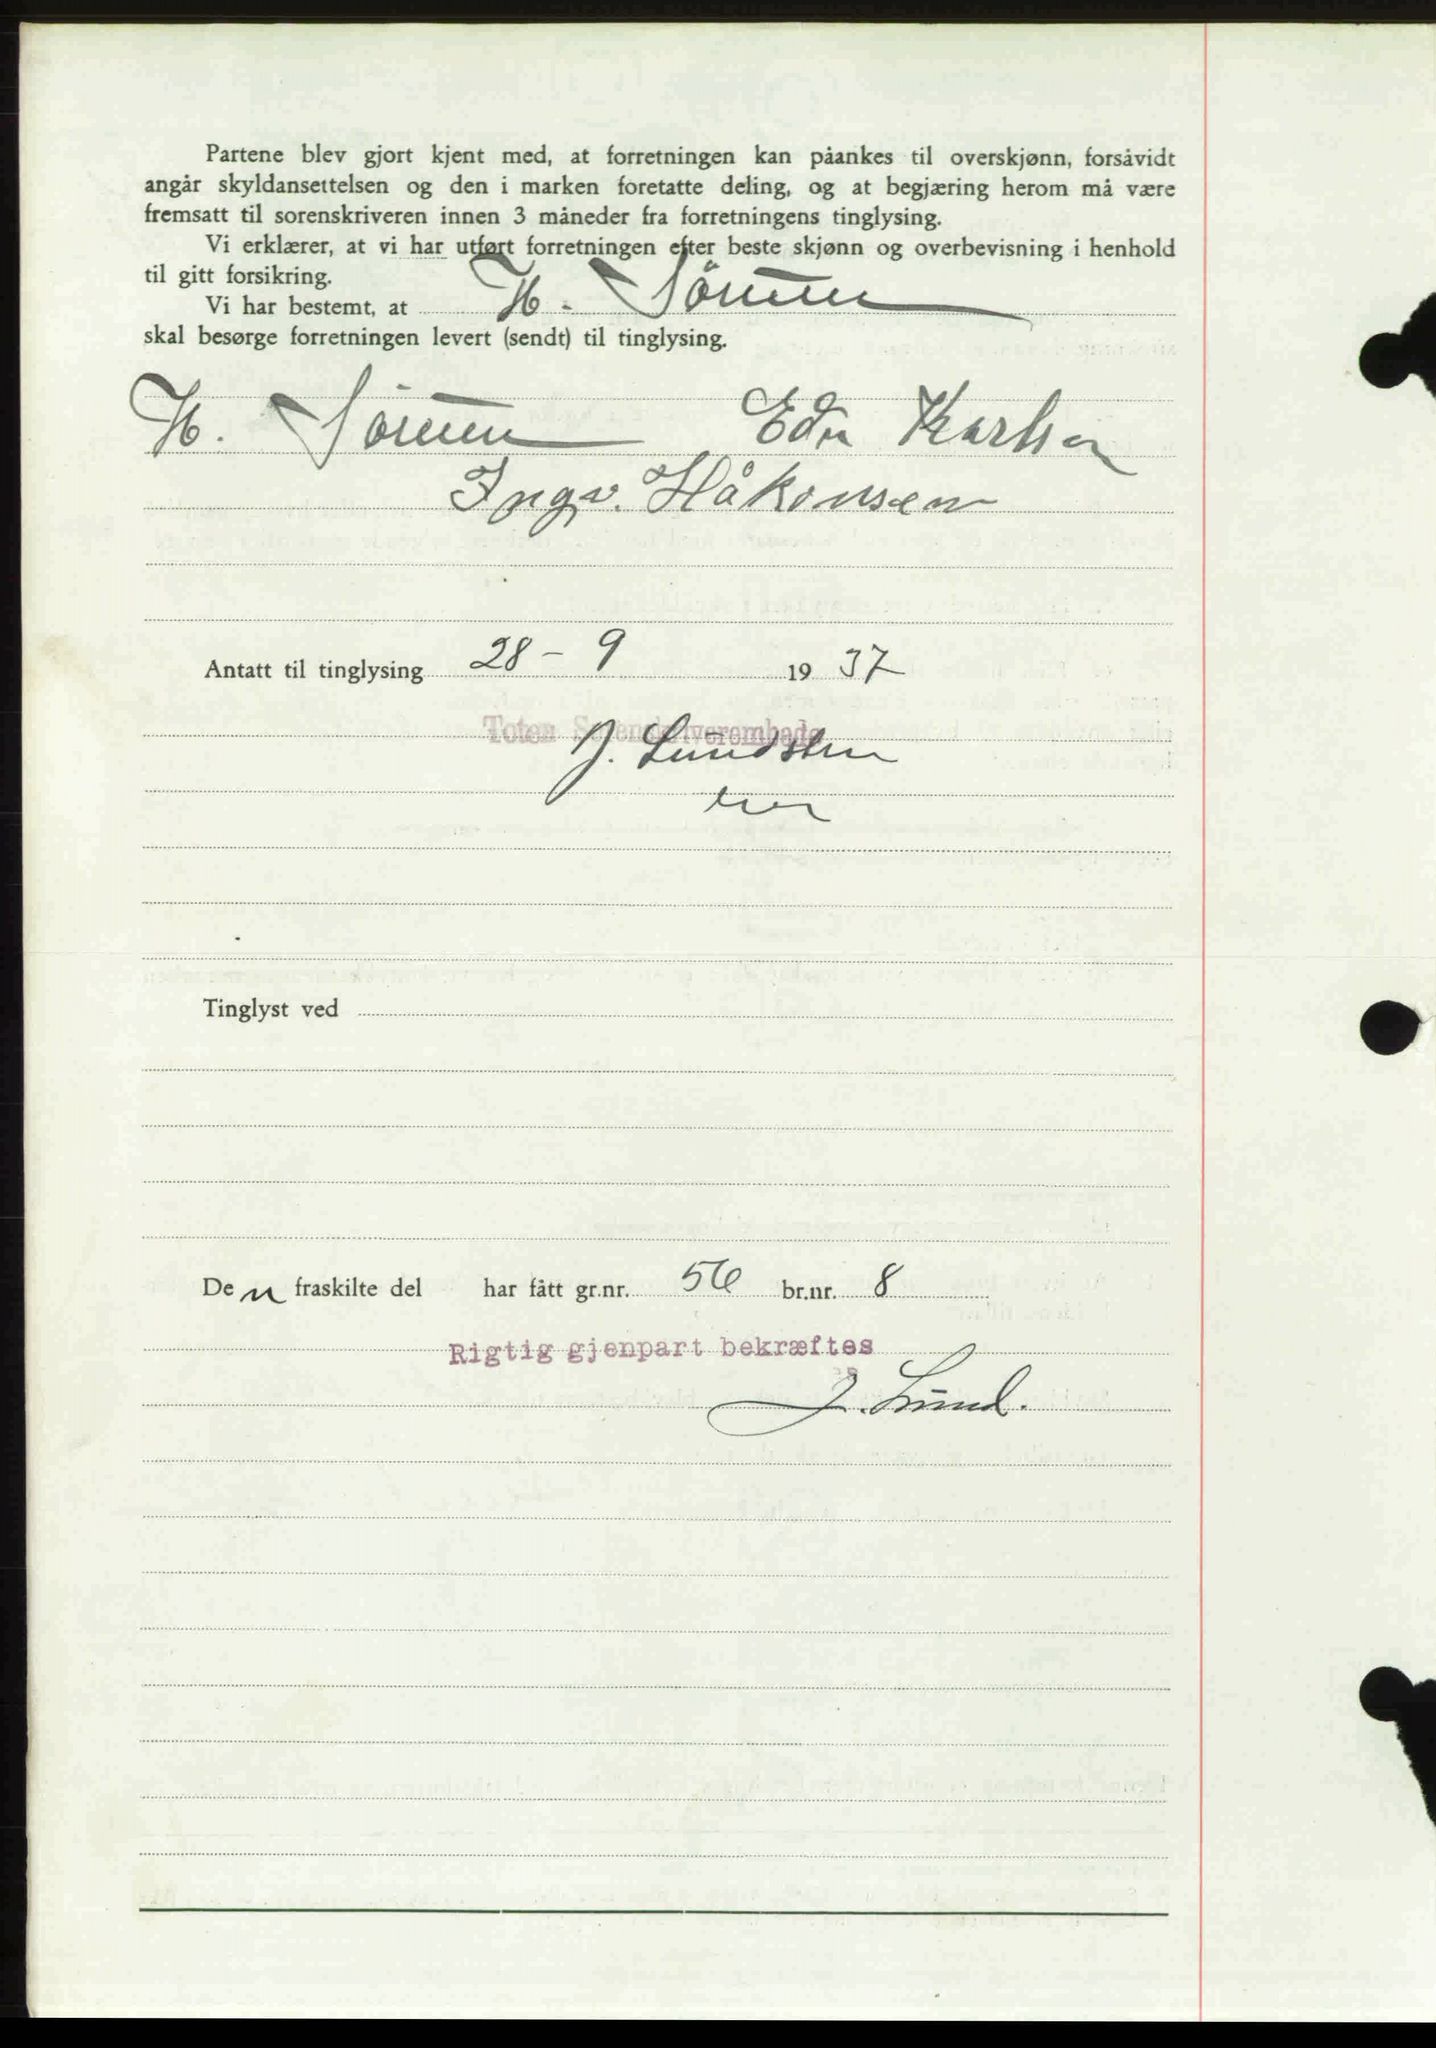 Partene blev gjort kjent med, at forretningen kan påankes til overskjønn, forsåvidt
angår skyldansettelsen og den i marken foretatte deling, og at begjæring herom må være
fremsatt til sorenskriveren innen 3 måneder fra forretningens tinglysing.
Vi erklærer, at vi har utført forretningen efter beste skjønn og overbevisning i henhold
til gitt forsikring.
Vi har bestemt, at H.
skal besørge forretningen levert (sendt) til tinglysing.
H. Edv Karlsen
Ingv. Håkonsen
Antatt til tinglysing 28 - 9 1937
Toten Sorenskriverembede
J. Lundsten
Tinglyst ved
De n fraskilte del har fått gr.nr. 56 br.nr. 8
Rigtig gjenpart bekræftes
J. Lund.